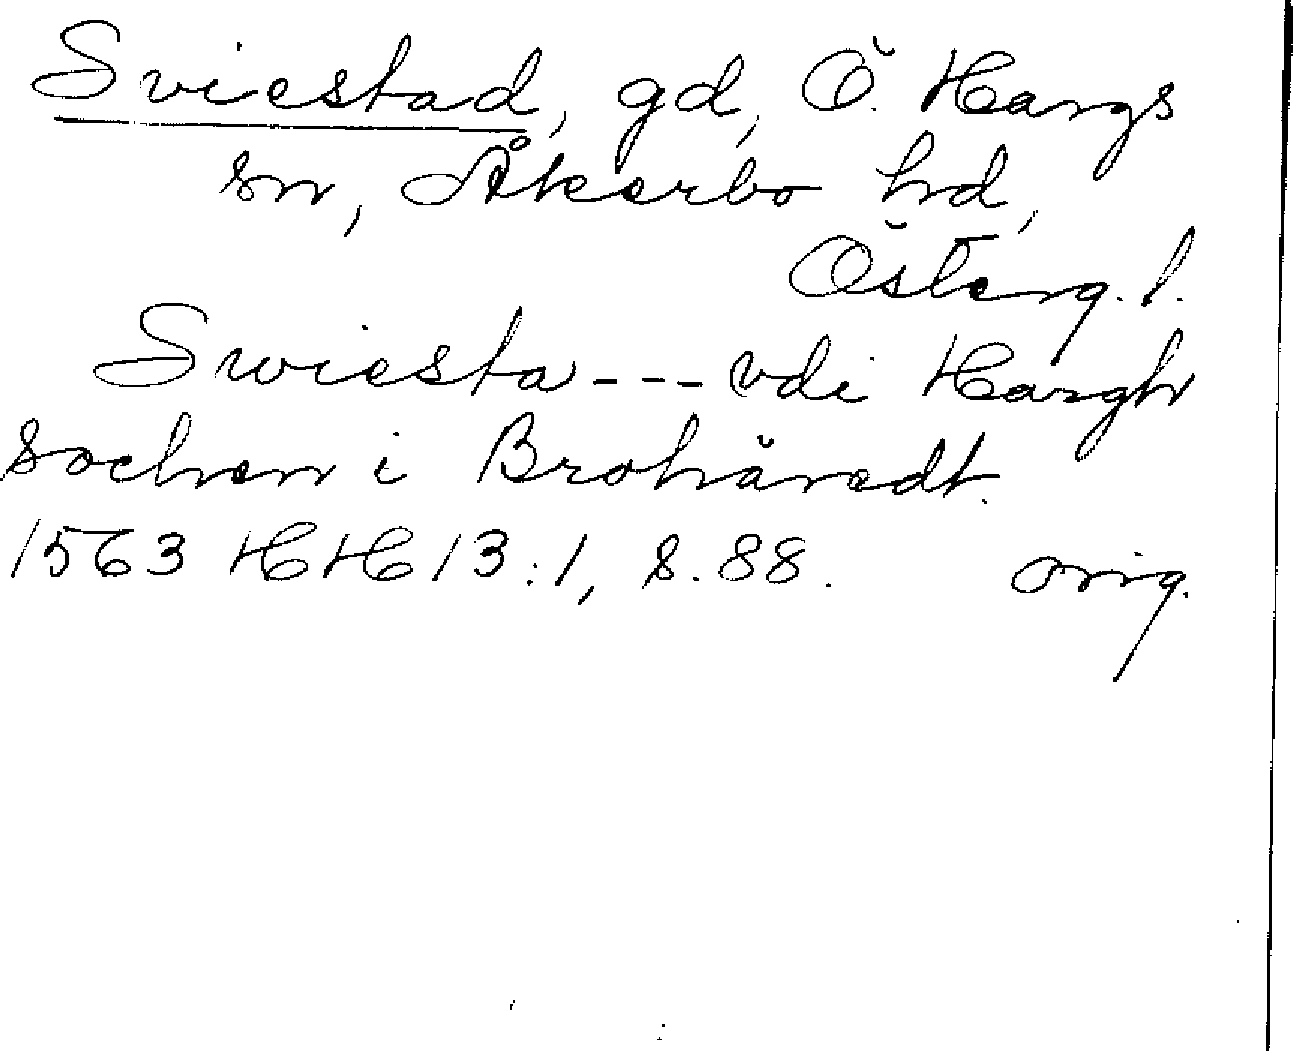 Sviestad, gd, Ö. Hargs
sn, Åkerbo hd,
Österg. l.
Swiesta --- vdi Hargh
sochen i Brohäredt.
1563 HH 13:1, s. 88. orig.